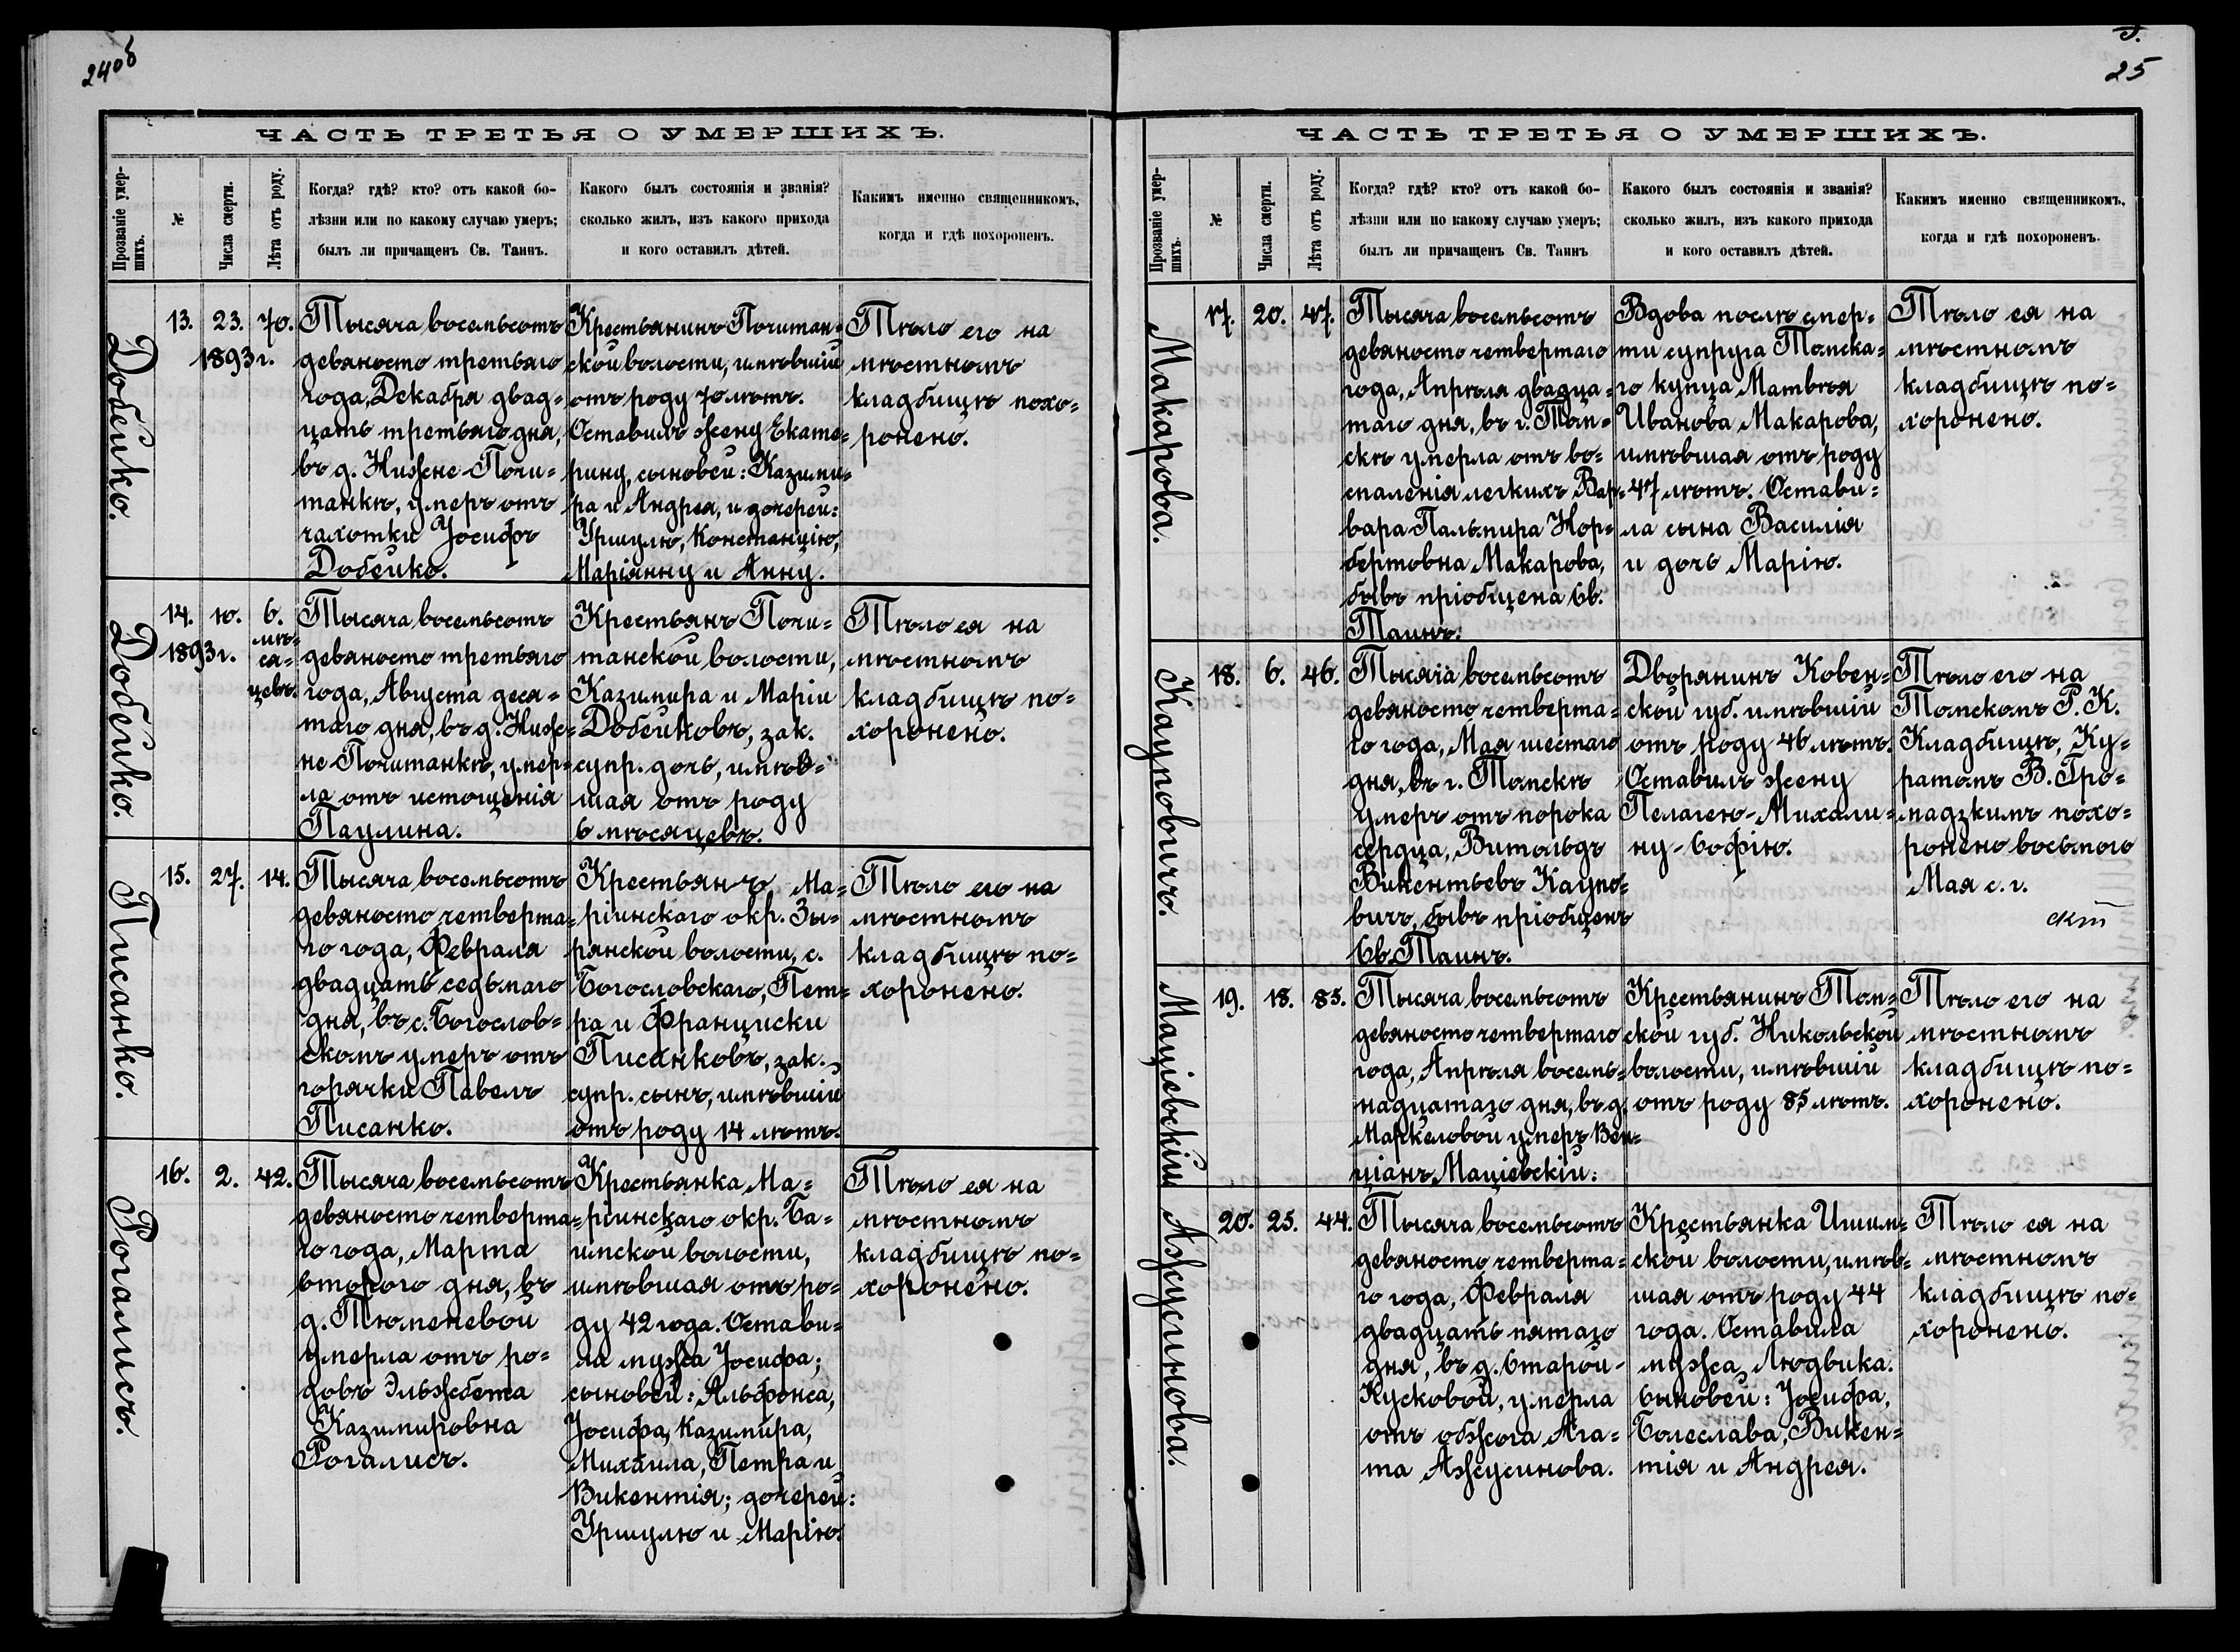 240б
ЧАСТЬ ТРЕТЬЯ О УМЕРШИХЪ.
Прозваніе умер-
шихъ.
№
Числа смерти.
Лѣта отъ роду.
Когда? гдѣ? кто? отъ какой бо-
лѣзни или по какому случаю умеръ;
былъ ли причащенъ Св. Таинъ.
Какого былъ состоянія и званія?
сколько жилъ, изъ какого прихода
и кого оставилъ дѣтей.
Какимъ именно священникомъ,
когда и гдѣ похороненъ.
Добейко.
13.
23.
1893 г.
70.
Тысяча восемьсотъ
девяносто третьяго
года, Декабря двад-
цать третьяго дня,
въ д. Нижне-Почи-
танкѣ, умеръ отъ
чахотки Іосифъ
Добейко.
Крестьянинъ Почитан-
ской волости, имѣвшій
отъ роду 70 лѣтъ.
Оставилъ жену Екате-
рину, сыновей: Казими-
ра и Андрея, и дочерей:
Уршулю, Констанцію,
Маріянну и Анну.
Тѣло его на
мѣстномъ
кладбищѣ похо-
ронено.
Добейко.
14.
10.
1893 г.
6.
мѣ-
ся-
цевъ.
Тысяча восемьсотъ
девяносто третьяго
года, Августа деся-
таго дня, въ д. Ниж-
не-Почитанкѣ, умер-
ла отъ истощенія
Паулина.
Крестьянъ Почи-
танской волости,
Казимира и Маріи
Добейковъ, зак.
супр. дочь, имѣв-
шая отъ роду
6 мѣсяцевъ.
Тѣло ея на
мѣстномъ
кладбищѣ по-
хоронено.
Писанко.
15.
27.
14.
Тысяча восемьсотъ
девяносто четверта-
го года, Февраля
двадцать седьмаго
дня, въ с. Богослов-
скомъ умеръ отъ
горячки Павелъ
Писанко.
Крестьянъ, Ма-
ріинскаго окр. Зы-
рянской волости, с.
Богословскаго, Пет-
ра и Франциски
Писанковъ, зак.
супр. сынъ, имѣвшій
отъ роду 14 лѣтъ.
Тѣло его на
мѣстномъ
кладбищѣ по-
хоронено.
Рогалисъ.
16.
2.
42.
Тысяча восемьсотъ
девяносто четверта-
го года, Марта
второго дня, въ
д. Тюменевой
умерла отъ ро-
довъ Эльжбета
Казимировна
Рогалисъ.
Крестьянка Ма-
ріинскаго окр. Ба-
имской волости,
имѣвшая отъ ро-
ду 42 года. Остави-
ла мужа Іосифа;
сыновей: Альфонса,
Іосифа, Казимира,
Михаила, Петра и
Викентія; дочерей:
Уршулю и Марію.
Тѣло ея на
мѣстномъ
кладбищѣ по-
хоронено.
25
ЧАСТЬ ТРЕТЬЯ О УМЕРШИХЪ.
Прозваніе умер-
шихъ.
№
Числа смерти.
Лѣта отъ роду.
Когда? гдѣ? кто? отъ какой бо-
лѣзни или по какому случаю умеръ;
былъ ли причащенъ Св. Таинъ
Какого былъ состоянія и званія?
сколько жилъ, изъ какого прихода
и кого оставилъ дѣтей.
Какимъ именно священникомъ,
когда и гдѣ похороненъ.
Макарова.
17.
20.
47.
Тысяча восемьсотъ
девяносто четвертаго
года, Апрѣля двадца-
таго дня, въ г. Том-
скѣ умерла отъ во-
спаленія легкихъ Вар-
вара Пальмира Нор-
бертовна Макарова,
бывъ пріобщена Св.
Таинъ.
Вдова послѣ смер-
ти супруга Томска-
го купца Матвѣя
Иванова Макарова,
имѣвшая отъ роду
47 лѣтъ. Остави-
ла сына Василія
и дочь Марію.
Тѣло ея на
мѣстномъ
кладбищѣ по-
хоронено.
Кауповичъ.
18.
6.
46.
Тысяча восемьсотъ
девяносто четверта-
го года, Мая шестаго
дня, въ г. Томскѣ
умеръ отъ порока
сердца, Витольдъ
Викентьевъ Каупо-
вичъ, бывъ пріобщенъ
Св. Таинъ.
Дворянинъ Ковен-
ской губ. имѣвшій
отъ роду 46 лѣтъ.
Оставилъ жену
Пелагею-Михали-
ну-Софію.
Тѣло его на
Томскомъ Р. К.
Кладбищѣ, Ку-
ратомъ В. Гро-
мадзкимъ похо-
ронено восьмого
Мая с. г.
Маціевскій
19.
18.
85.
Тысяча восемьсотъ
девяносто четвертаго
года, Апрѣля восемь-
надцатаго дня, въ д.
Маркеловой умеръ Вен-
ціанъ Маціевскій.
Крестьянинъ Том-
ской губ. Никольской
волости, имѣвшій
отъ роду 85 лѣтъ.
Тѣло его на
мѣстномъ
кладбищѣ по-
хоронено.
Ажусинова.
20.
25.
44.
Тысяча восемьсотъ
девяносто четверта-
го года, Февраля
двадцать пятаго
дня, въ д. Старой-
Кусковой, умерла
отъ обжога Ага-
та Ажусинова.
Крестьянка Ишим-
ской волости, имѣв-
шая отъ роду 44
года. Оставила
мужа Людвика.
Сыновей: Іосифа,
Болеслава, Викен-
тія и Андрея.
Тѣло ея на
мѣстномъ
кладбищѣ по-
хоронено.